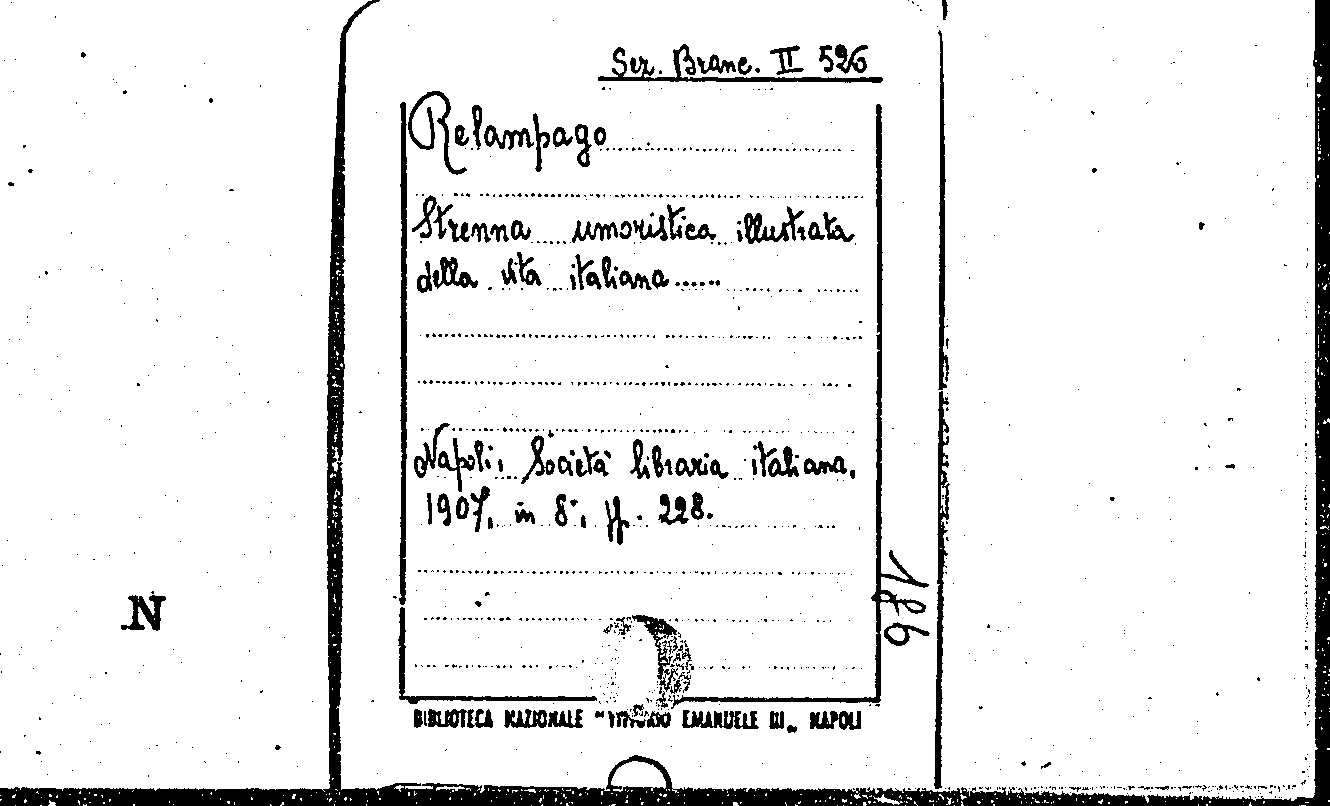 Sez. Branc. II 526
Relampago
Strenna umoristica illustrata
della vita italiana......
Napoli, Società libraria italiana,
1907, in 8°, pp. 228.
186
N
BIBLIOTECA NAZIONALE "VITTORIO EMANUELE III„ NAPOLI